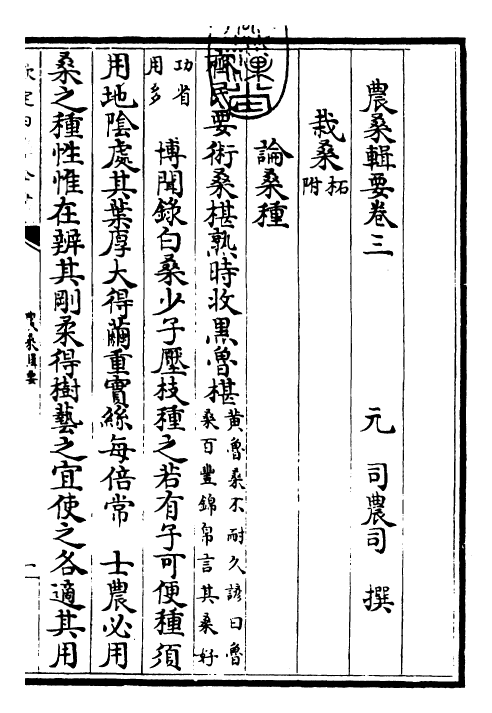 農桑輯要卷三
元 司農司 撰
栽桑 柘附
論桑種
齊民要術桑椹熟時收黑魯椹 黃魯桑不耐久諺曰魯桑百豐錦帛言其桑好
功省用多 博聞錄白桑少子壓枝種之若有子可便種須
用地陰處其葉厚大得繭重實絲每倍常 士農必用
桑之種性惟在辨其剛柔得樹藝之宜使之各適其用
農桑輯要
一